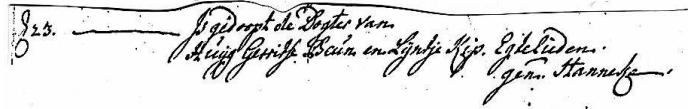 d 23. Is gedoopt de Dogter van
Huijg Gerritse Bain en Lijntje Kip. Egtelieden.
gen.t Hanneke